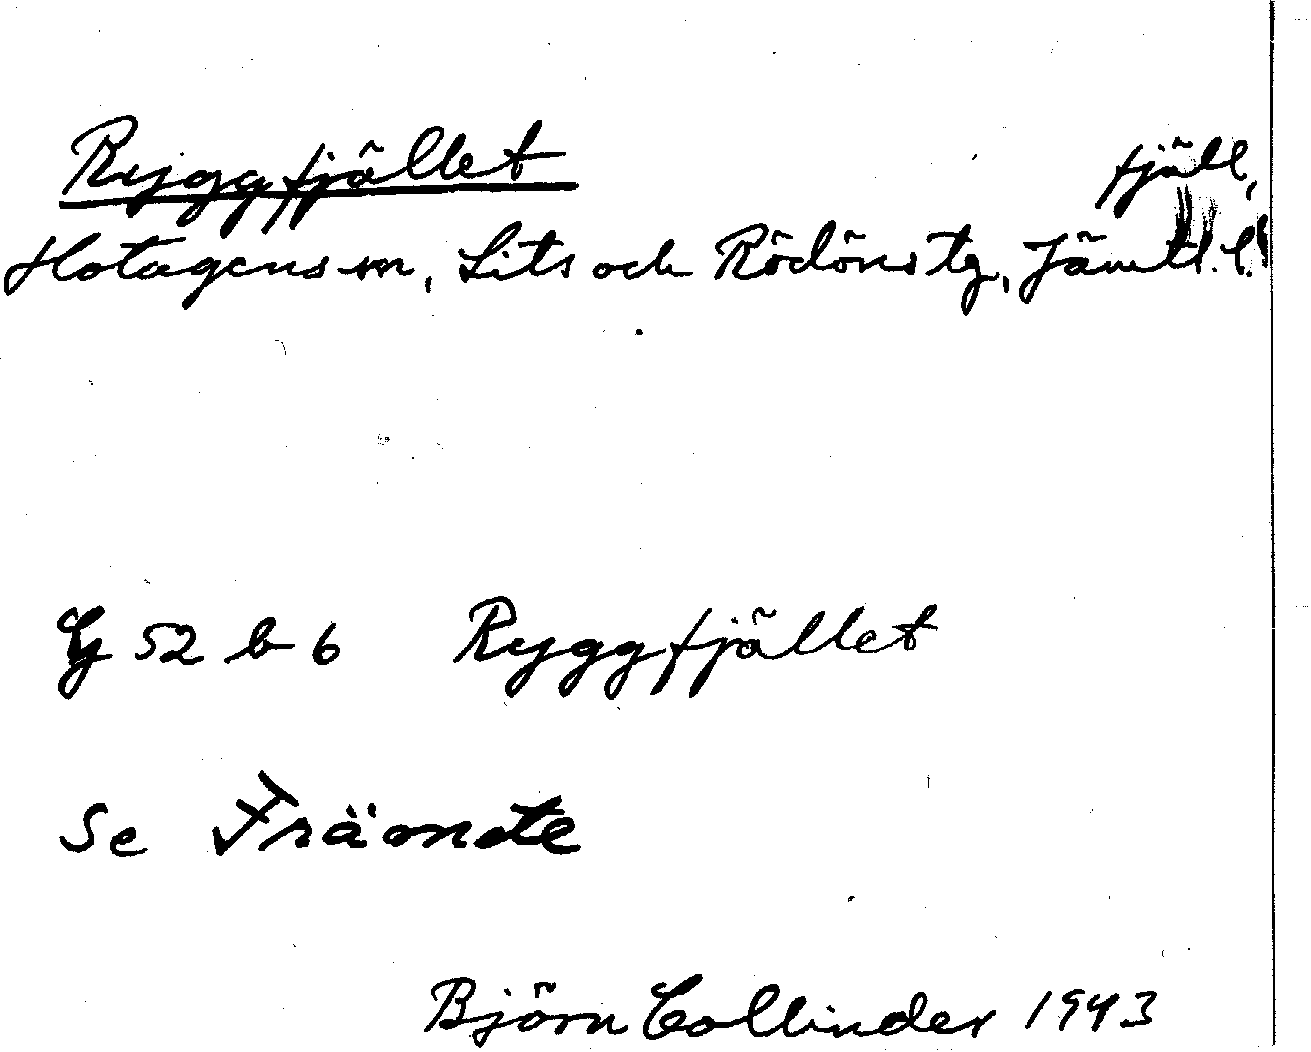 Ryggfjället fjäll,
Hotagens sn, Lits och Rödöns tg, Jämtl. l.
G 52 b 6 Ryggfjället
Se
Björn Collinder 1943